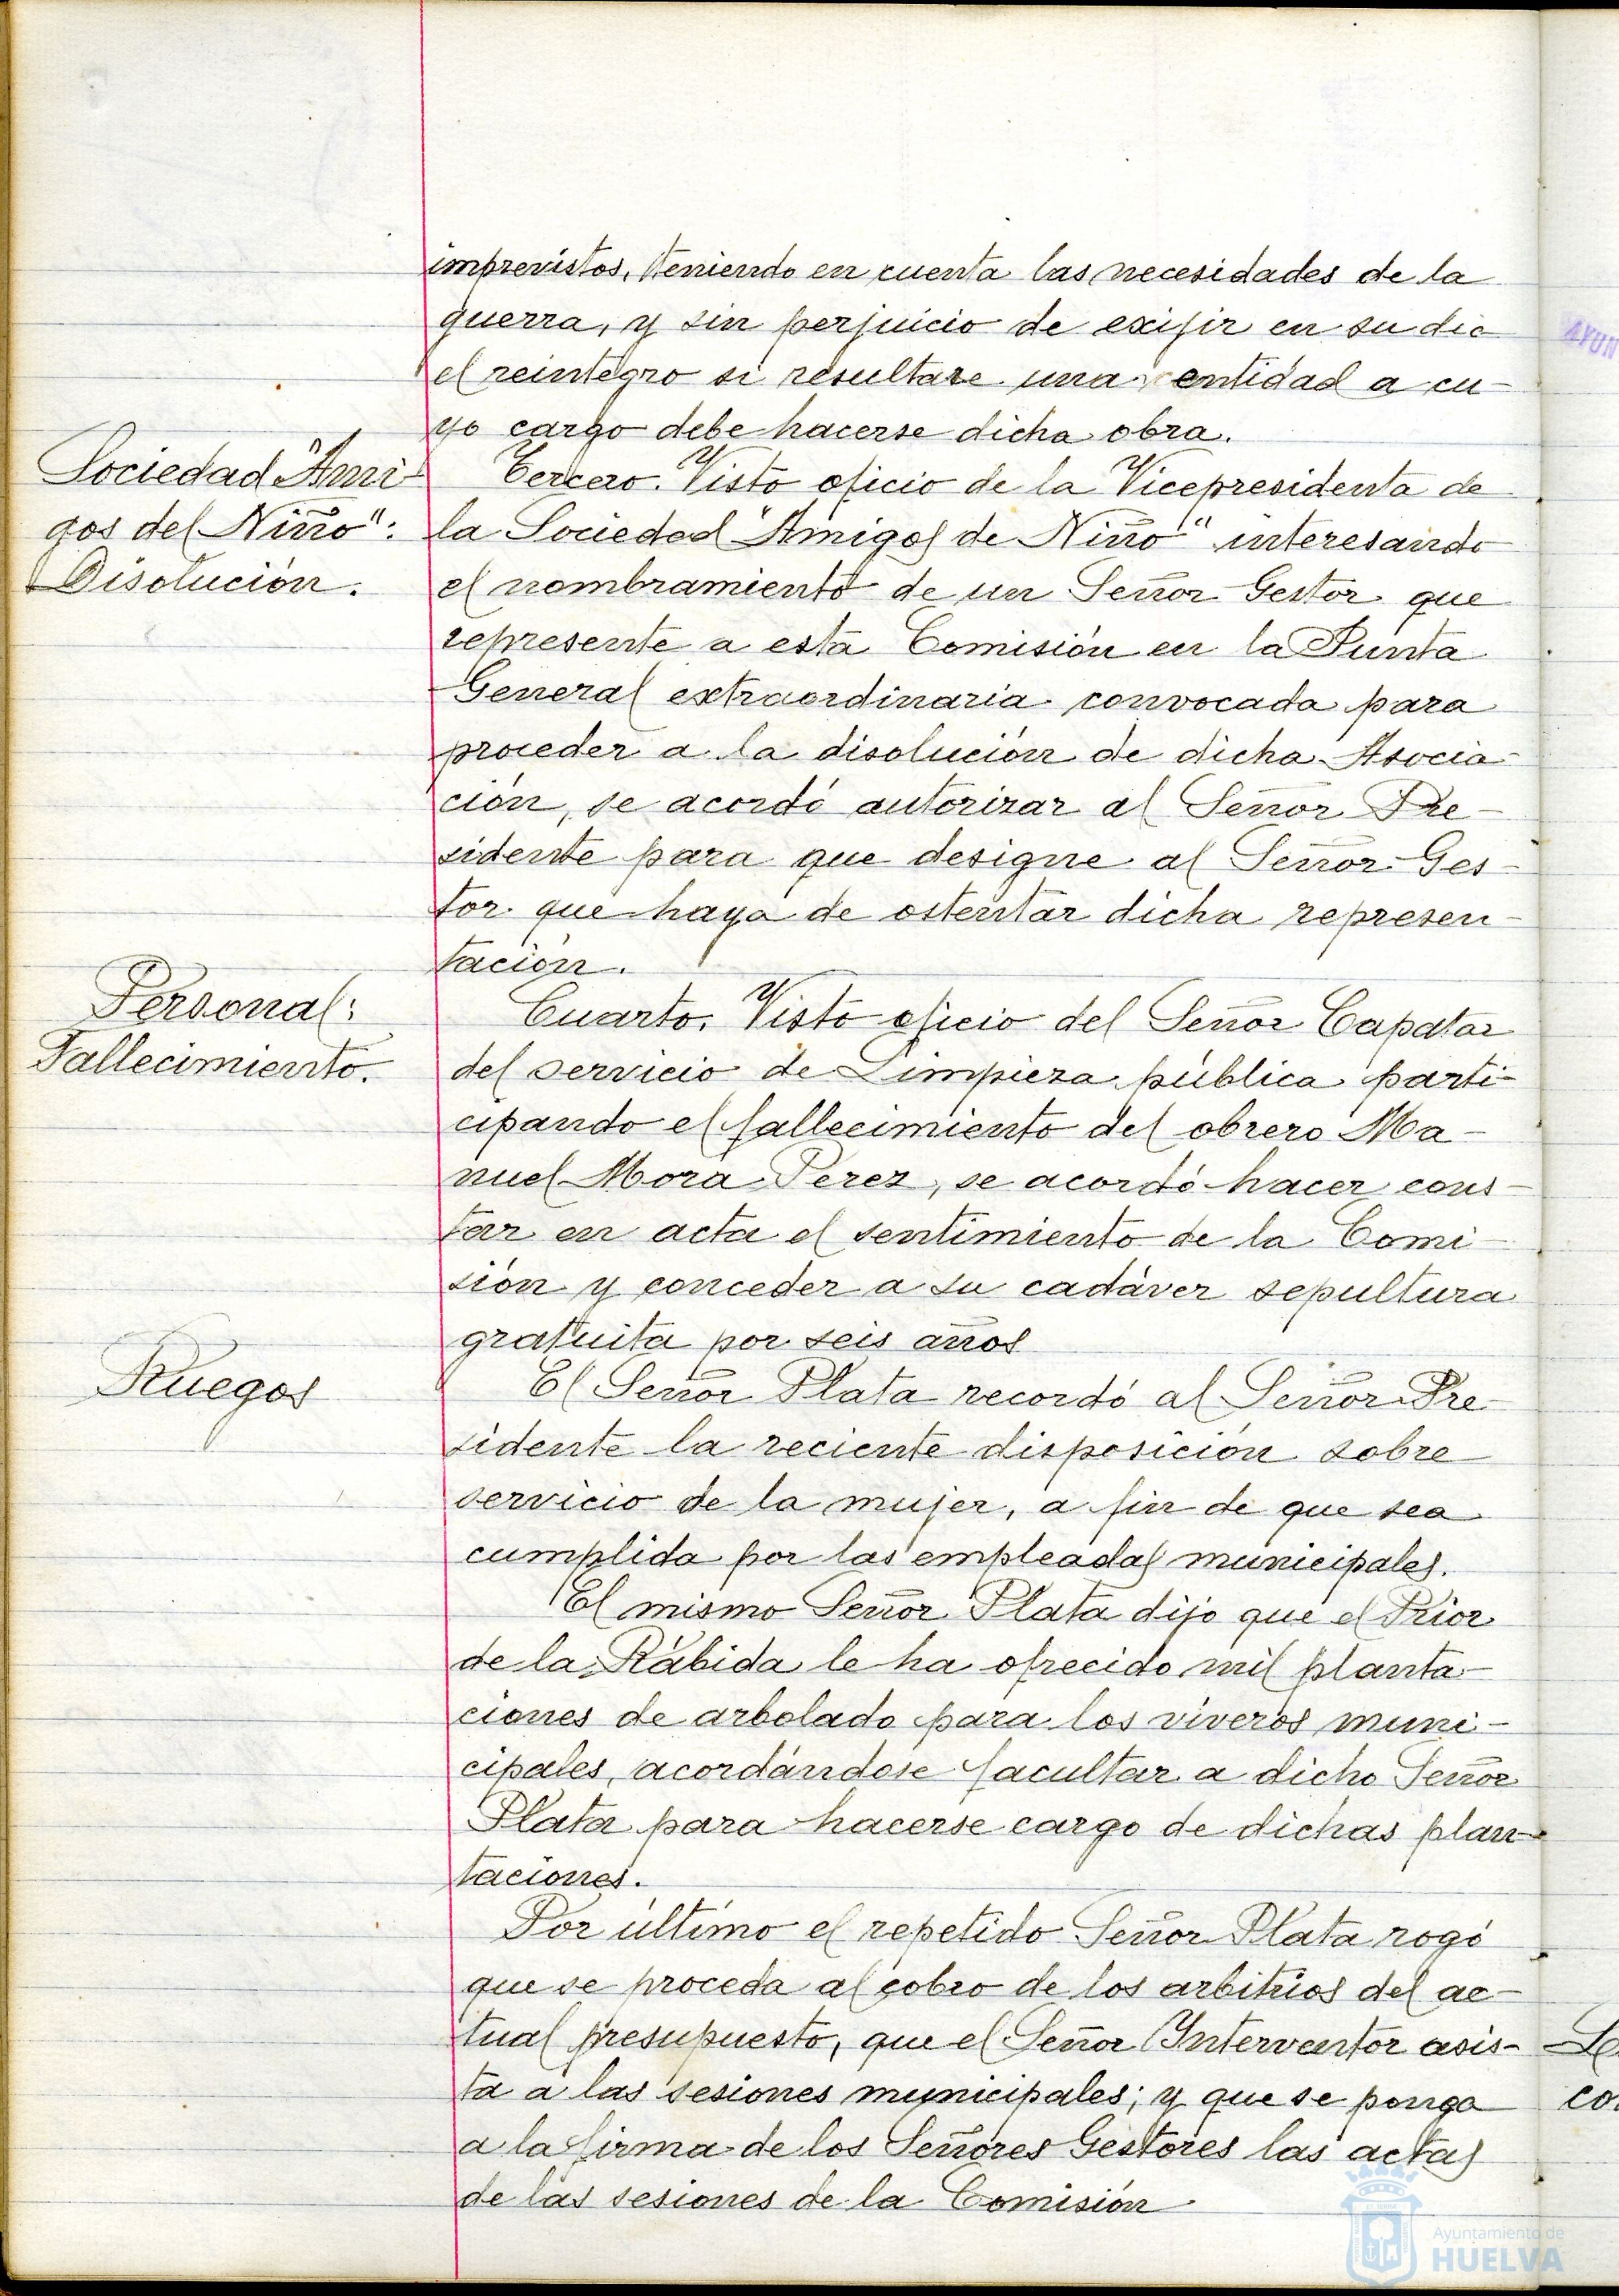 imprevistos, teniendo en cuenta las necesidades de la
guerra, y sin perjuicio de exijir en su dia
el reintegro si resultare una entidad a cu-
yo cargo debe hacerse dicha obra.
Sociedad "Ami
gos del Niño":
Disolución.
Tercero. Visto oficio de la Vicepresidenta de
la Sociedad "Amigos de Niño" interesando
el nombramiento de un Señor Gestor que
represente a esta Comisión en la Junta
General extraordinaria convocada para
proceder a la disolución de dicha Asocia-
ción, se acordó autorizar al Señor Pre-
sidente para que designe al Señor Ges-
tor que haya de ostentar dicha represen-
tación.
Personal:
Fallecimiento.
Cuarto. Visto oficio del Señor Capataz
del servicio de Limpieza pública parti-
cipando el fallecimiento del obrero Ma-
nuel Mora Perez, se acordó hacer cons-
tar en acta el sentimiento de la Comi-
sión y conceder a su cadáver sepultura
gratuita por seis años
Ruegos
El Señor Plata recordó al Señor Pre-
sidente la reciente disposición sobre
servicio de la mujer, a fin de que sea
cumplida por las empleadas municipales.
El mismo Señor Plata dijo que el Prior
de la Rábida le ha ofrecido mil planta-
ciones de arbolado para los viveros muni-
cipales, acordándose facultar a dicho Señor
Plata para hacerse cargo de dichas plan-
taciones.
Por último el repetido Señor Plata rogó
que se proceda al cobro de los arbitrios del ac-
tual presupuesto, que el Señor Interventor asis-
ta a las sesiones municipales; y que se ponga
a la firma de los Señores Gestores las actas
de las sesiones de la Comisión
AYUN
co
Ayuntamiento de
HUELVA